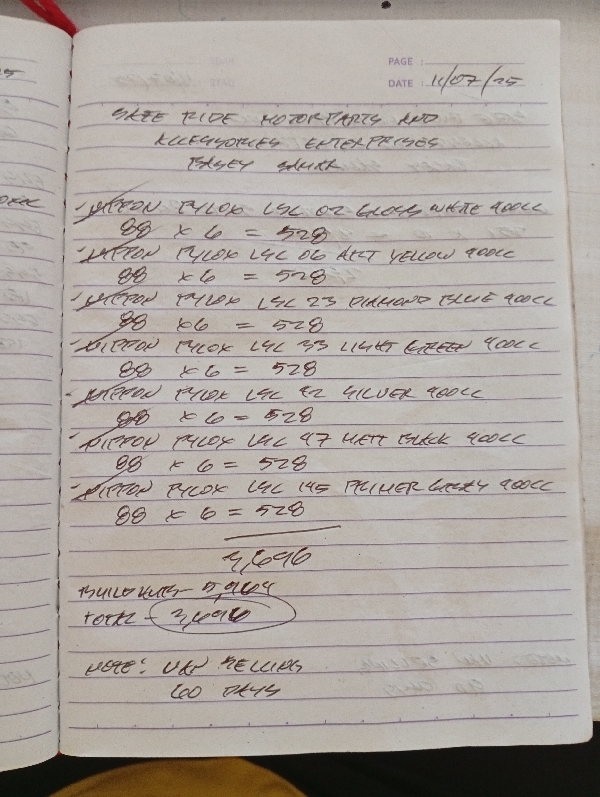 PAGE :
DATE : 11/07/25
SAFE RIDE MOTORPARTS AND
ACCESSORIES ENTERPRISES
BASEY SAMAR
NIPPON PYLOX LSC 02 GLOSS WHITE 400CC
88 x 6 = 528
NIPPON PYLOX LSC 06 ART YELLOW 400CC
88 x 6 = 528
NIPPON PYLOX LSC 23 DIAMOND BLUE 400CC
88 x6 = 528
NIPPON PYLOX LSC 33 LIGHT GREEN 400CC
88 x 6 = 528
NIPPON PYLOX LSC 42 SILVER 400CC
88 x 6 = 528
NIPPON PYLOX LSC 47 MATT BLACK 400CC
88 x 6 = 528
NIPPON PYLOX LSC 145 PRIMER GREY 400CC
88 x 6 = 528
3,696
TOTAL - 3,696
NOTE: VAN SELLING
60 DAYS